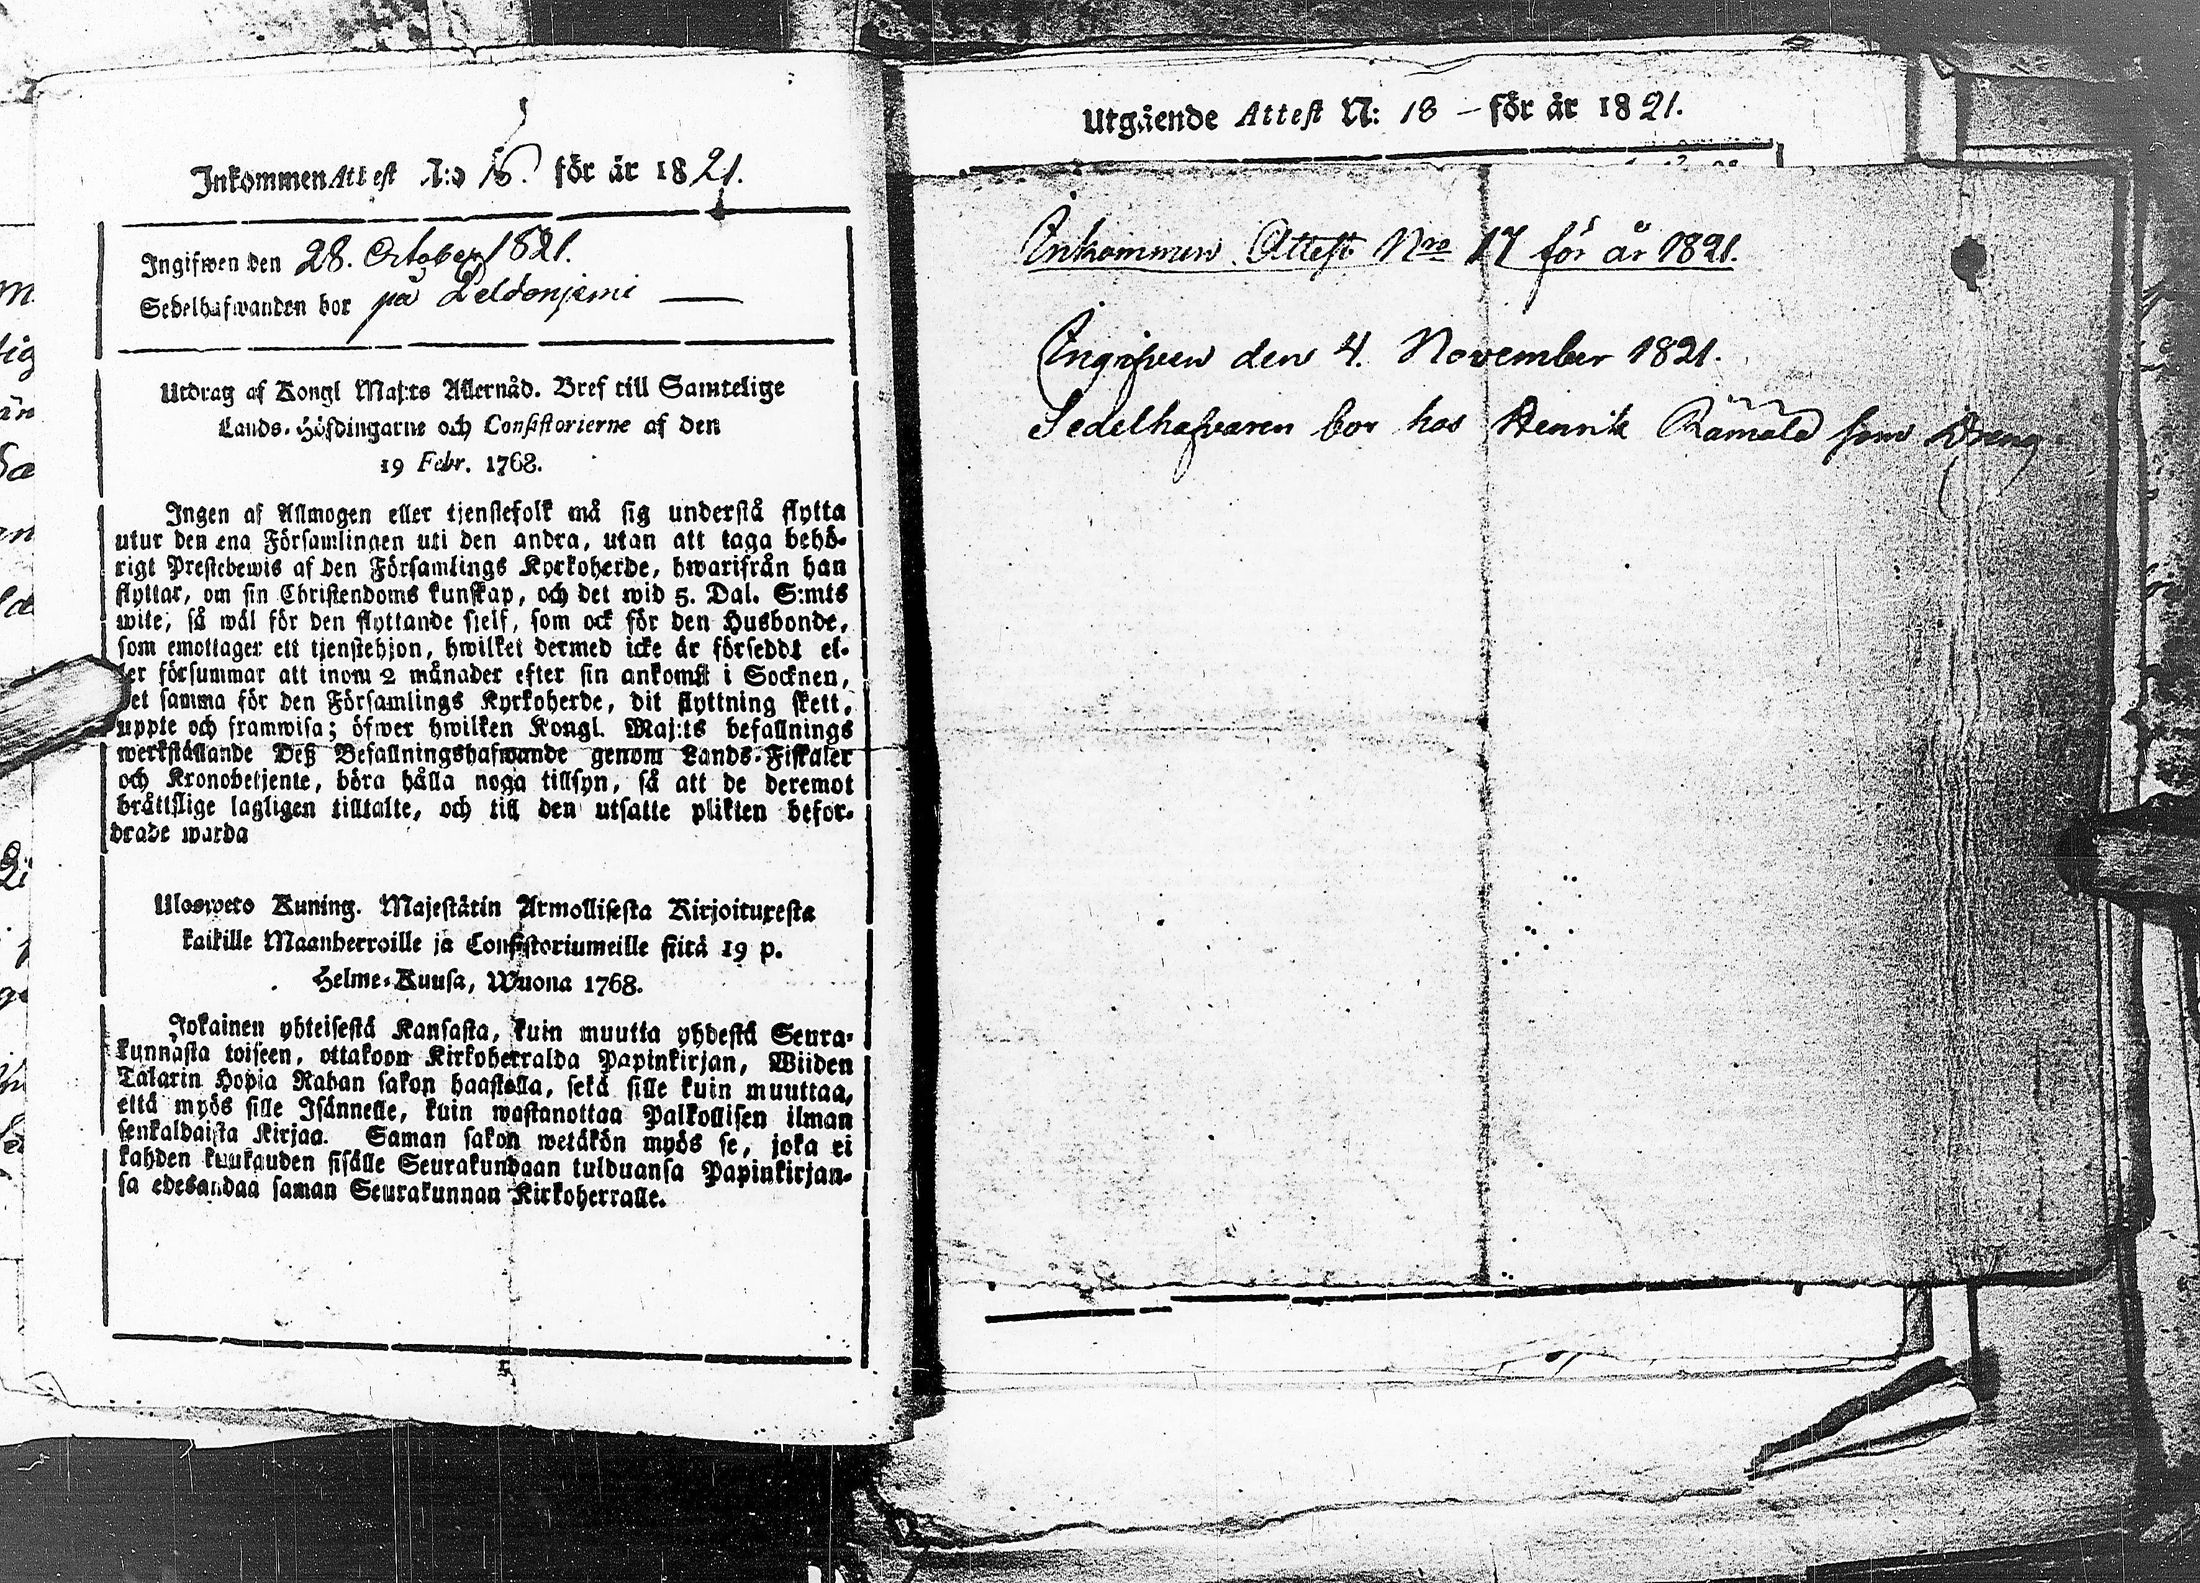 Inkommen Attest N:o 16. för år 1821.
Ingifwen den 28. October 1821.
Sedelhafwanden bor på
Utdrag af Kongl Maj:ts Allernåd. Bref till Samtelige
Lands-Höfdingarne och Consistorierne af den
19 Febr. 1768.
Ingen af Allmogen eller tjenstefolk må sig understå flytta
utur den ena Församlingen uti den andra, utan att taga behö-
rigt Prestebewis af den Församlings Kyrkoherde, hwarifrån han
flyttar, om sin Christendoms kunskap, och det wid 5. Dal. S:mts
wite, så wäl för den flyttande sjelf, som ock för den Husbonde,
som emottager ett tjenstehjon, hwilket dermed icke är förseddt el-
ler försummar att inom 2 månader efter sin ankomst i Socknen,
det samma för den Församlings Kyrkoherde, dit flyttning skett,
uppte och framwisa; öfwer hwilken Kongl. Maj:ts befallnings
werkställande Deß Befallningshafwande genom Lands-Fiskaler
och Kronobetjente, böra hålla noga tillsyn, så att de deremot
bråttslige lagligen tilltalte, och till den utsatte plikten befor-
drade warda
Ulosweto Kuning. Majestätin Armollisesta Kirjoituxesta
kaikille Maanherroille ja Consistoriumeille siitä 19 p.
Helme-Kuusa, Wuona 1768.
Jokainen yhteisestä Kansasta, kuin muutta yhdestä Seura-
kunnasta toiseen, ottakoon Kirkoherralda Papinkirjan, Wiiden
Talarin Hopia Rahan sakon haastolla, sekä sille kuin muuttaa,
että myös sille Isännelle, kuin wastanottaa Palkollisen ilman
senkaldaista Kirjaa. Saman sakon wetäkön myös se, joka ei
kahden kuukauden sisälle Seurakundaan tulduansa Papinkirjan-
sa edesandaa saman Seurakunnan Kirkoherralle.
Utgående Attest N: 18 – för år 1821.
Inkommen Attest Nro 17 för år 1821.
Ingifven den 4. November 1821.
Sedelhafvaren bor hos Henrik Rämälä som Dreng